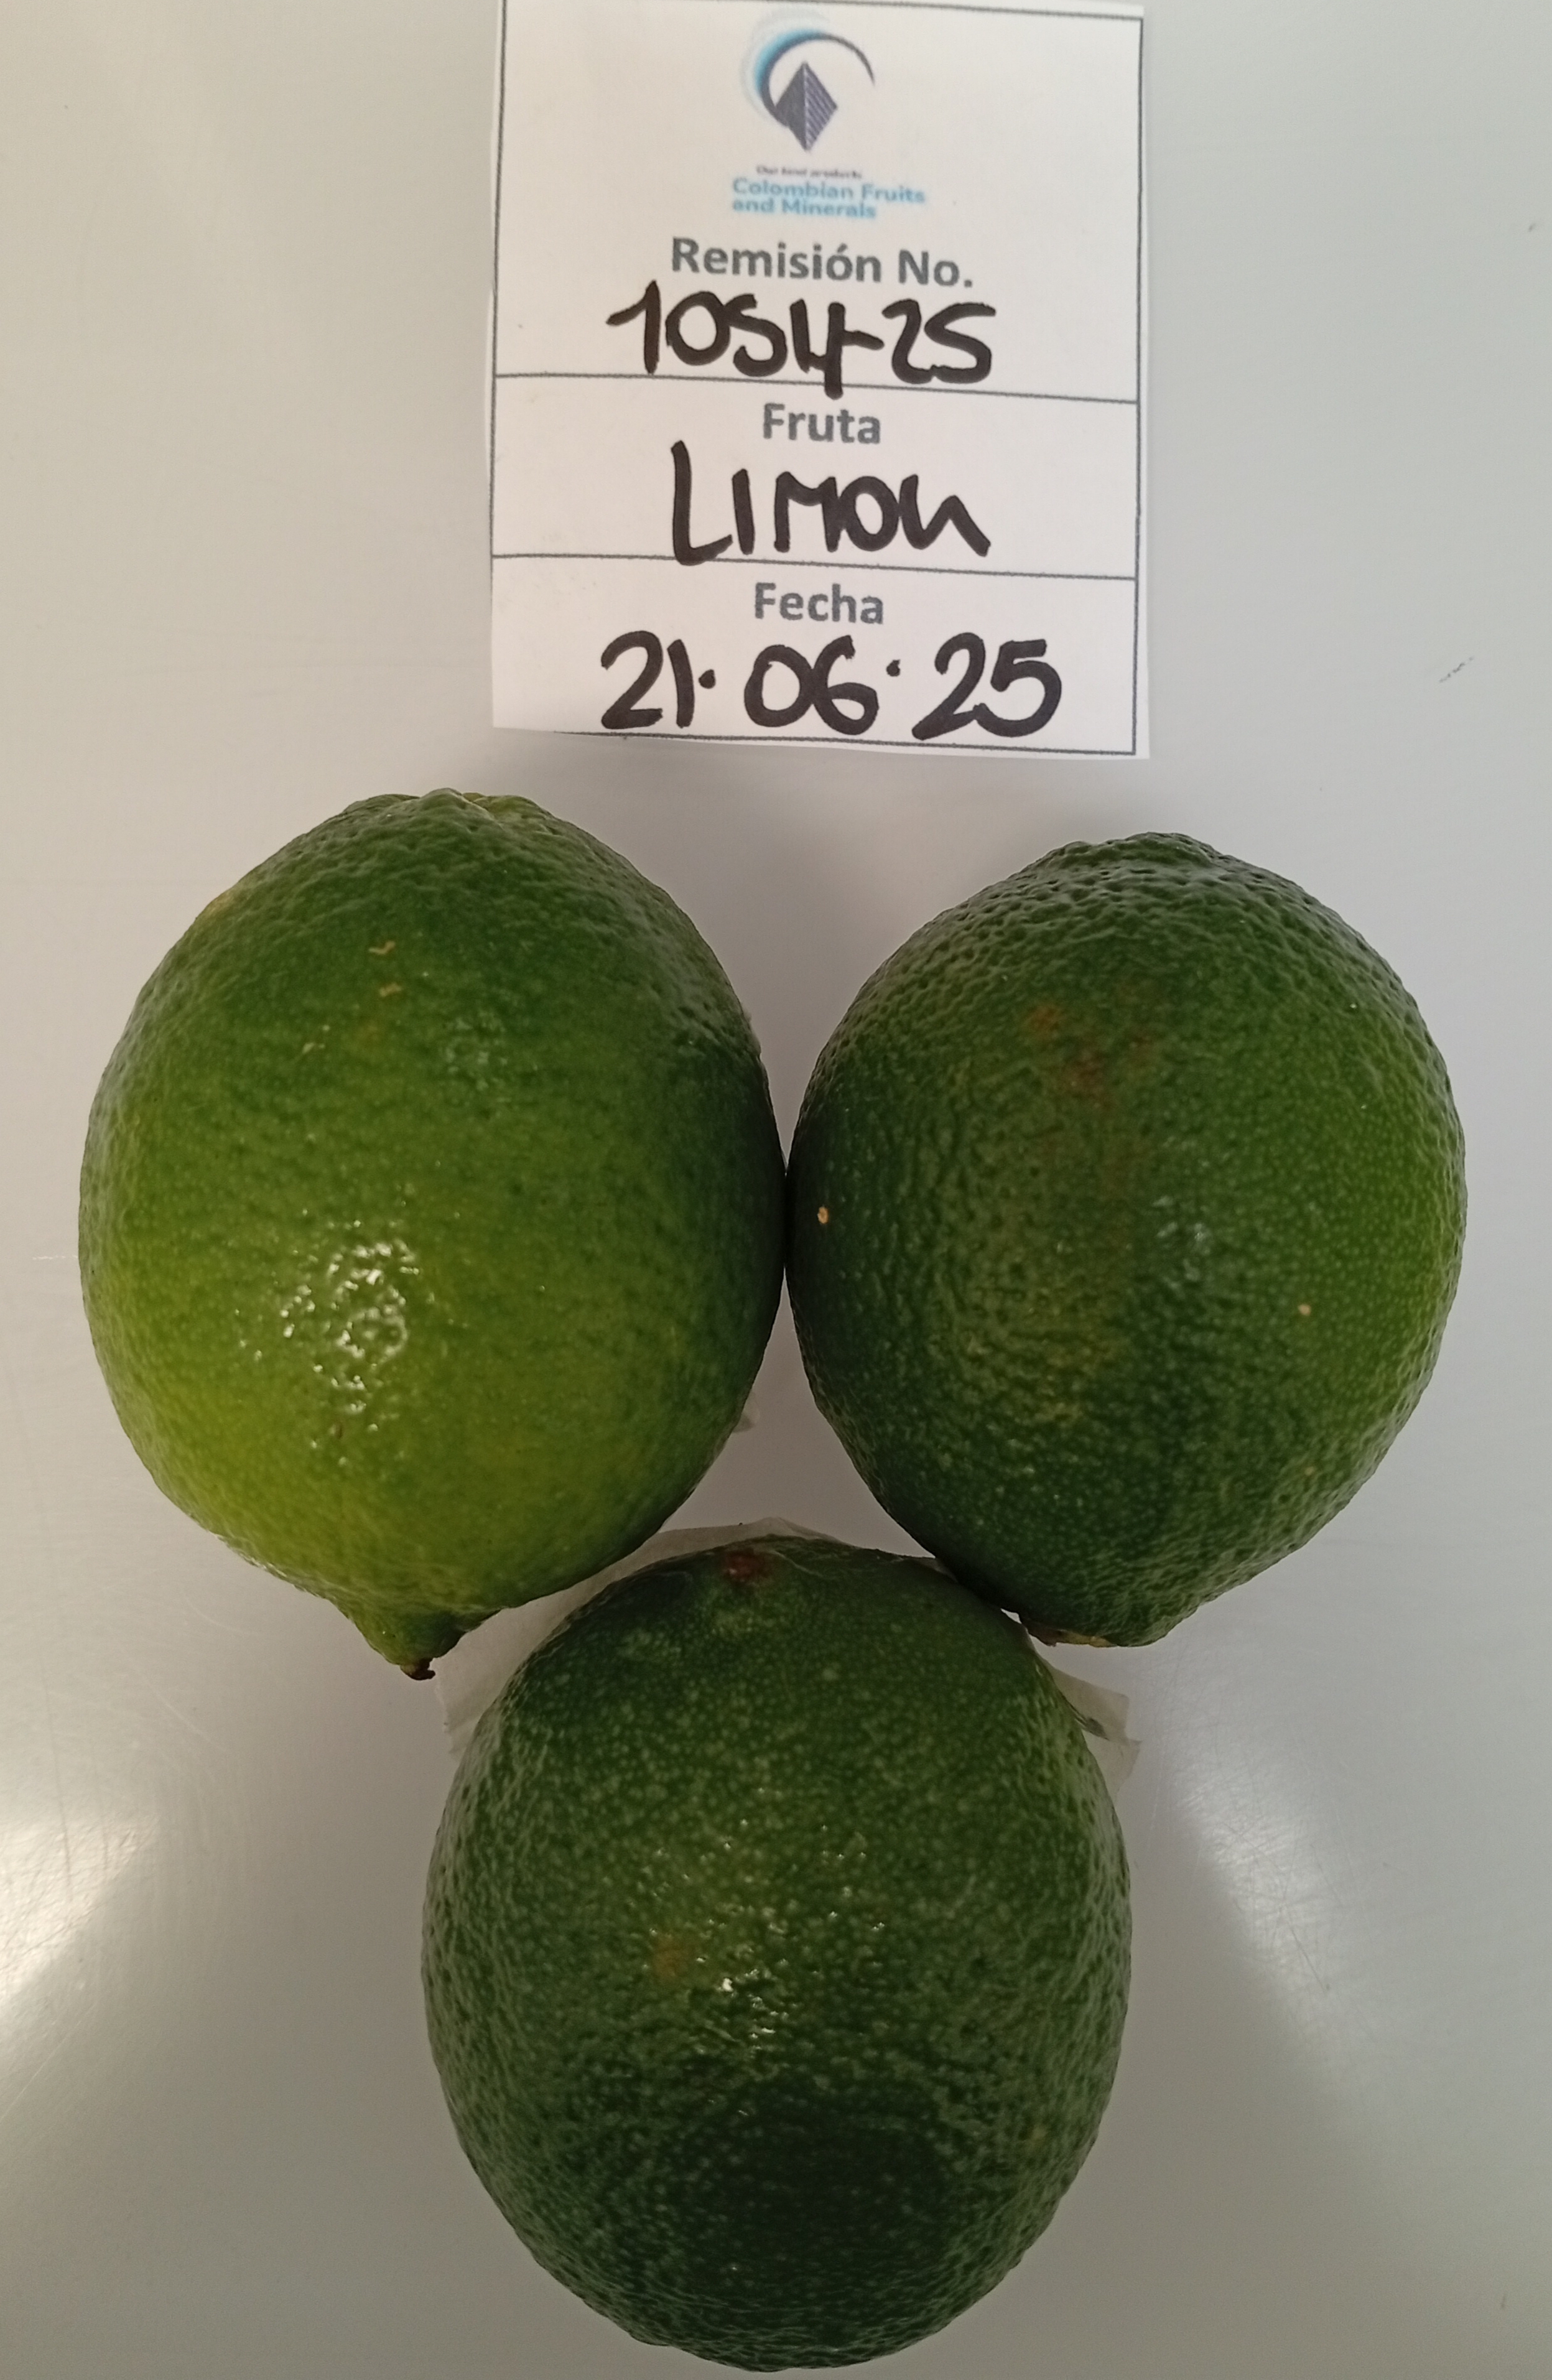 Our best products
Colombian Fruits
and Minerals
Remisión No.
1054-25
Fruta
LIMON
Fecha
21·06·25